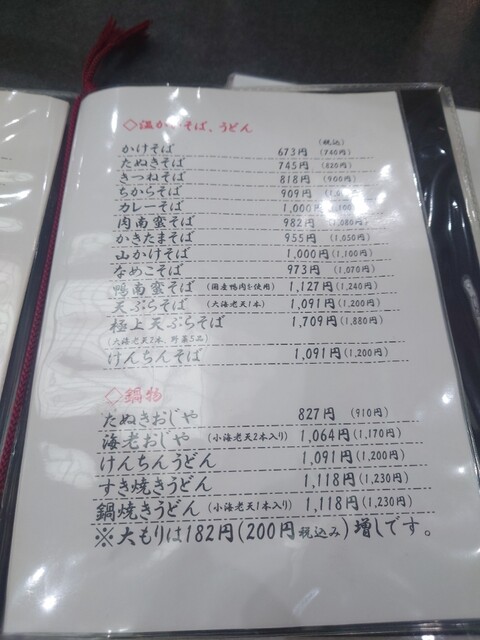 ◇温かいそば、うどん
(税込)
かけそば 673円 (740円)
たぬきそば 745円 (820円)
きつねそば 818円 (900円)
ちからそば 909円
カレーそば 1,000円
肉南蛮そば 982円 (1,080円)
かきたまそば 955円 (1,050円)
山かけそば 1,000円 (1,100円)
なめこそば 973円 (1,070円)
鴨南蛮そば (国産鴨肉を使用) 1,127円 (1,240円)
天ぷらそば (大海老天1本) 1,091円 (1,200円)
極上天ぷらそば 1,709円 (1,880円)
(大海老天2本、野菜5品)
けんちんそば 1,091円 (1,200円)
◇鍋物
たぬきおじや 827円 (910円)
海老おじや (小海老天2本入り) 1,064円 (1,170円)
けんちんうどん 1,091円 (1,200円)
すき焼きうどん 1,118円 (1,230円)
鍋焼きうどん (小海老天1本入り) 1,118円 (1,230円)
※大もりは182円(200円税込み)増しです。